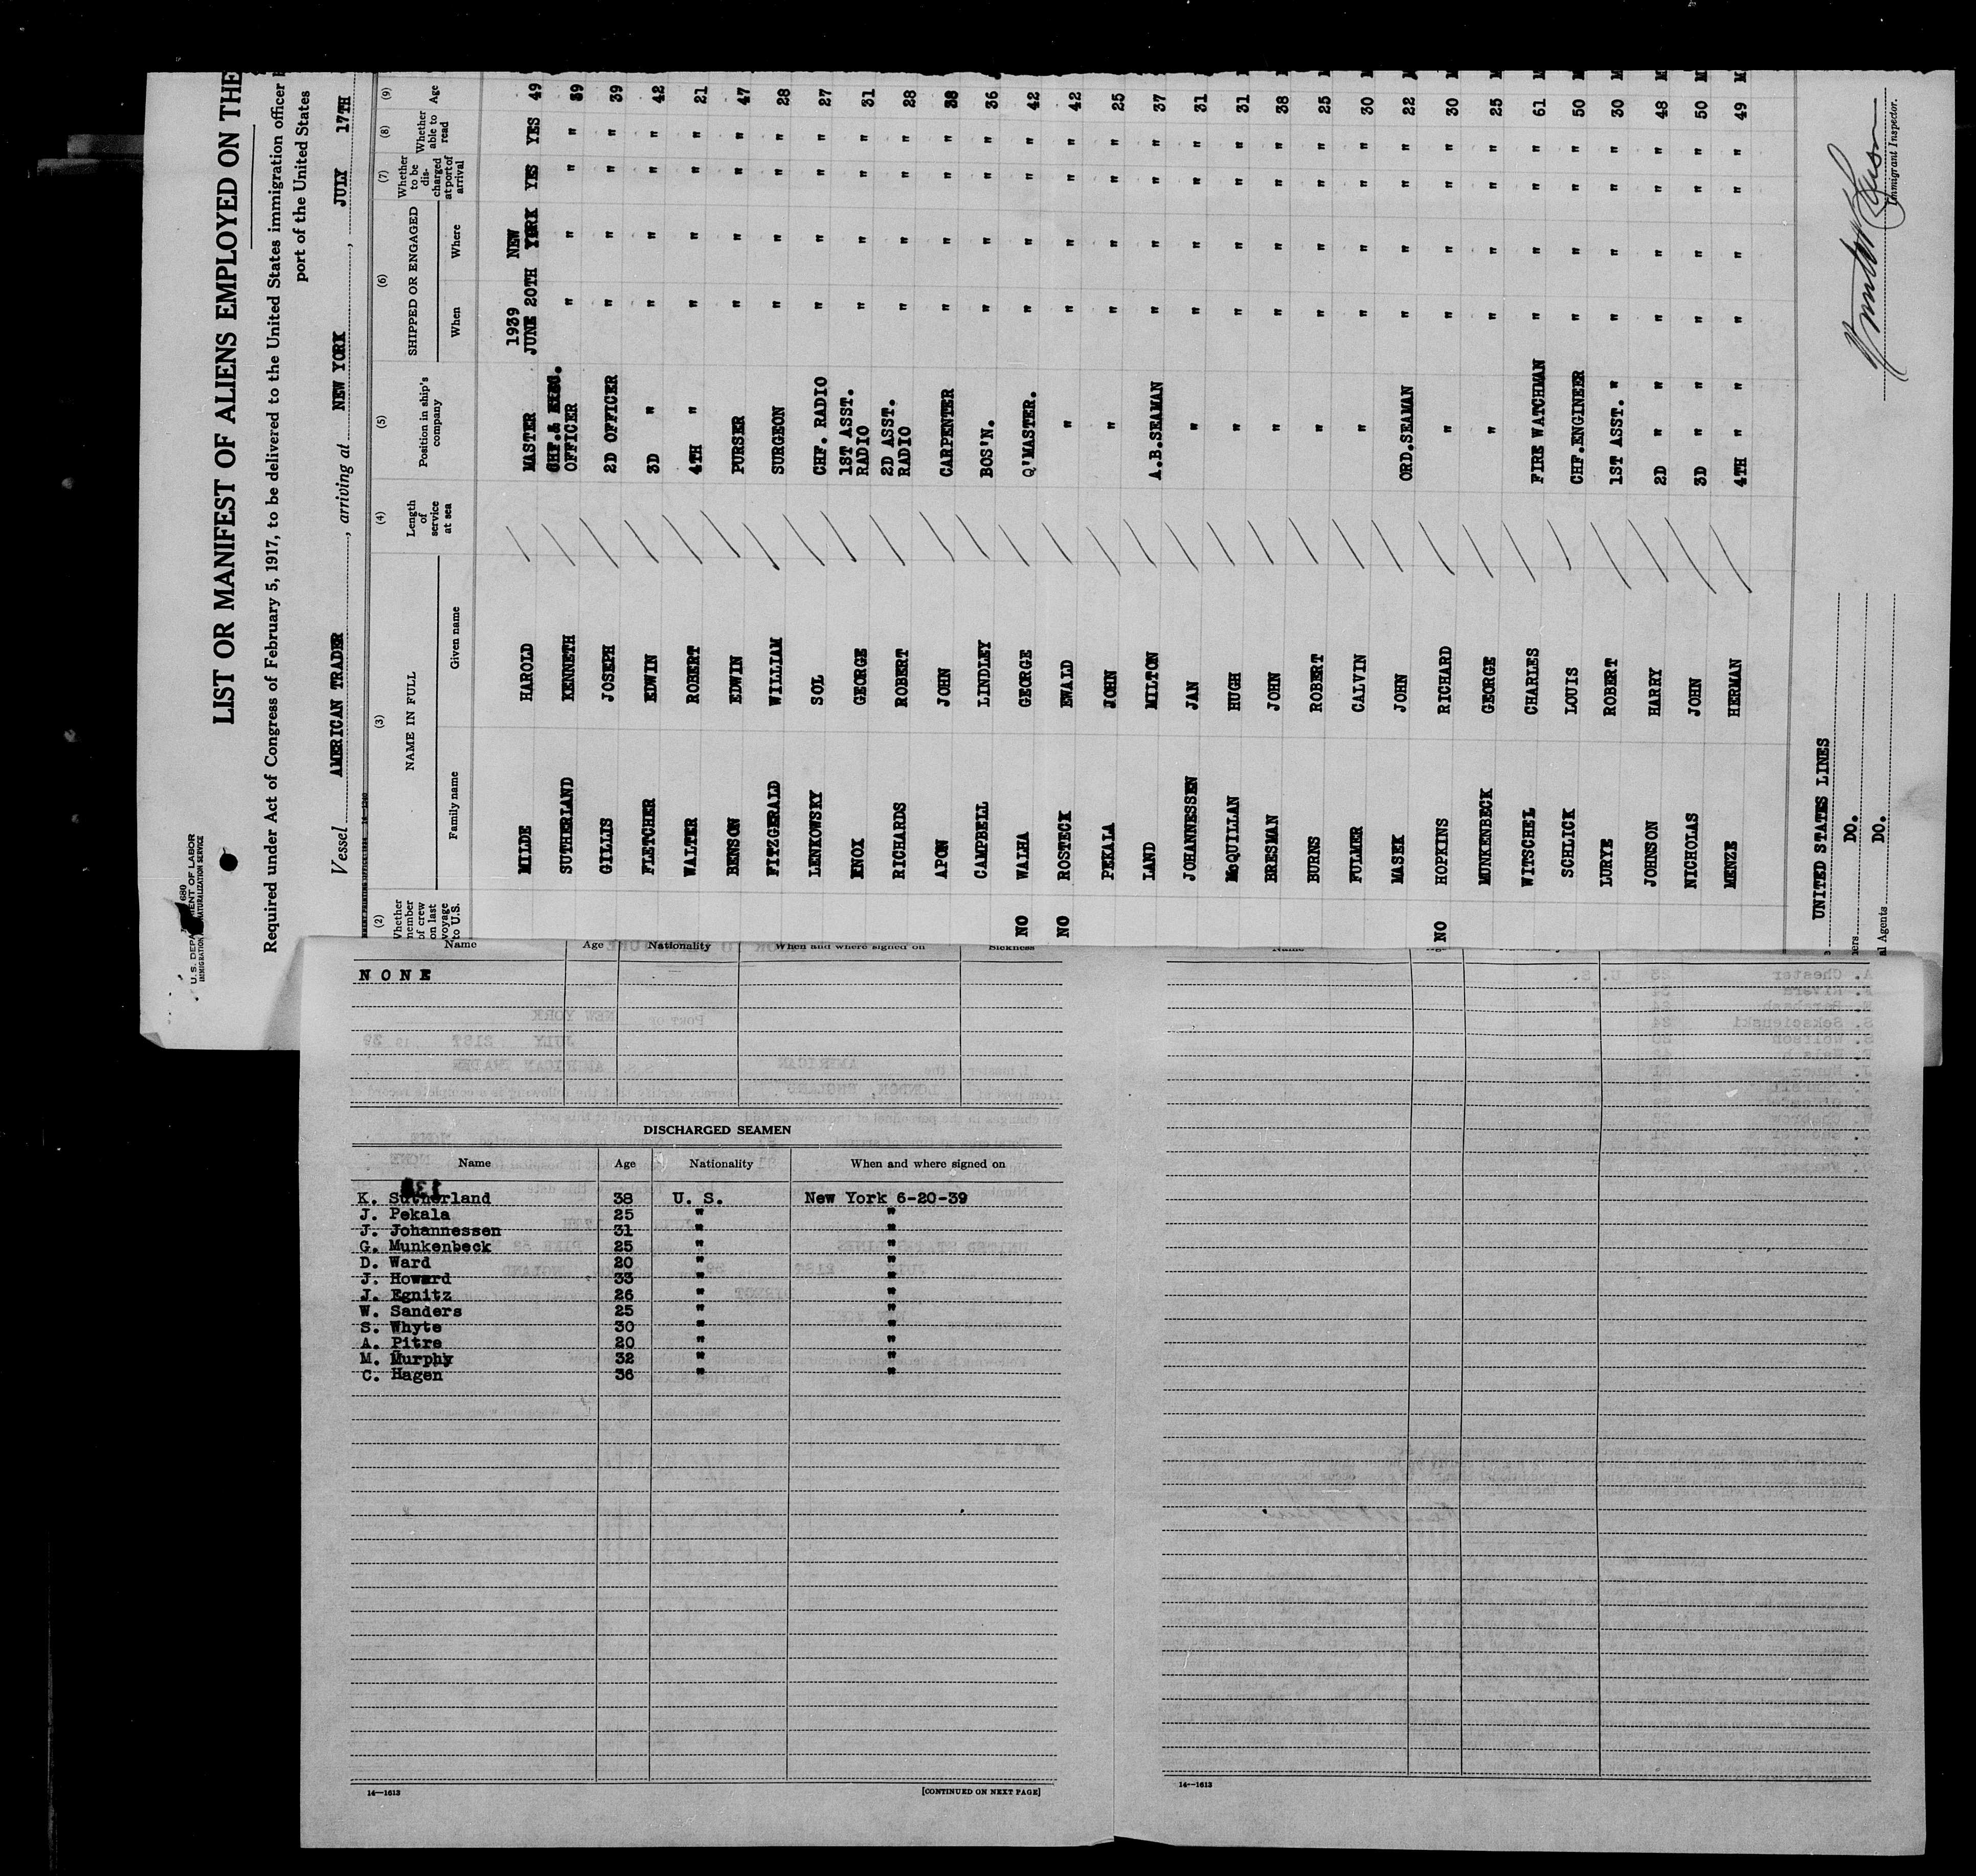 U.S. DEPARTMENT OF LABOR
IMMIGRATION NATURALIZATION SERVICE
LIST OR MANIFEST OF ALIENS EMPLOYED ON THE
Required under Act of Congress of February 5, 1917, to be delivered to the United States immigration officer
port of the United States
Vessel AMERICAN TRADER, arriving at NEW YORK, JULY 17TH
(2) (3) (4) (5) (6) (7) (8) (9)
Whether member of crew on last voyage to U.S. NAME IN FULL Family name Given name Length of service at sea Position in ship's company SHIPPED OR ENGAGED When Where Whether to be discharged at port of arrival Whether able to read Age
1939 NEW
MILDE HAROLD MASTER JUNE 20TH YORK YES YES 49
SUTHERLAND KENNETH CHF.& EXEC. OFFICER " " " " 39
GILLIS JOSEPH 2D OFFICER " " " " 39
FLETCHER EDWIN 3D " " " " " 42
WALTER ROBERT 4TH " " " " " 21
BENSON EDWIN PURSER " " " " 47
FITZGERALD WILLIAM SURGEON " " " " 28
LENKOWSKY SOL CHF. RADIO " " " " 27
KNOX GEORGE 1ST ASST. RADIO " " " " 31
RICHARDS ROBERT 2D ASST. RADIO " " " " 28
APON JOHN CARPENTER " " " " 38
CAMPBELL LINDLEY BOS'N. " " " " 36
NO WALHA GEORGE Q'MASTER. " " " " 42
NO ROSTECK EWALD " " " " " 42
PEKALA JOHN " " " " " 25
LAND MILTON A.B.SEAMAN " " " " 37
JOHANNESSEN JAN " " " " " 31
McQUILLAN HUGH " " " " " 31
BRESMAN JOHN " " " " " 38
BURNS ROBERT " " " " " 25
FULMER CALVIN " " " " " 30
MASEK JOHN ORD.SEAMAN " " " " 22
NO HOPKINS RICHARD " " " " " 30
MUNKENBECK GEORGE " " " " " 25
WITSCHEL CHARLES FIRE WATCHMAN " " " " 61
SCHLICK LOUIS CHF.ENGINEER " " " " 50
LURYE ROBERT 1ST ASST. " " " " " 30
JOHNSON HARRY 2D " " " " " " 48
NICHOLAS JOHN 3D " " " " " " 50
MENZE HERMAN 4TH " " " " " " 49
UNITED STATES LINES
DO.
DO.
Agents
Immigrant Inspector.
Name Age Nationality When and where signed on Sickness
NONE
DISCHARGED SEAMEN
Name Age Nationality When and where signed on
K. Sutherland 38 U. S. New York 6-20-39
J. Pekala 25 " "
J. Johannessen 31 " "
G. Munkenbeck 25 " "
D. Ward 20 " "
J. Howard 33 " "
J. Egnitz 26 " "
W. Sanders 25 " "
S. Whyte 30 " "
A. Pitre 20 " "
M. Murphy 32 " "
C. Hagen 36 " "
14—1613 [CONTINUED ON NEXT PAGE]
14—1613